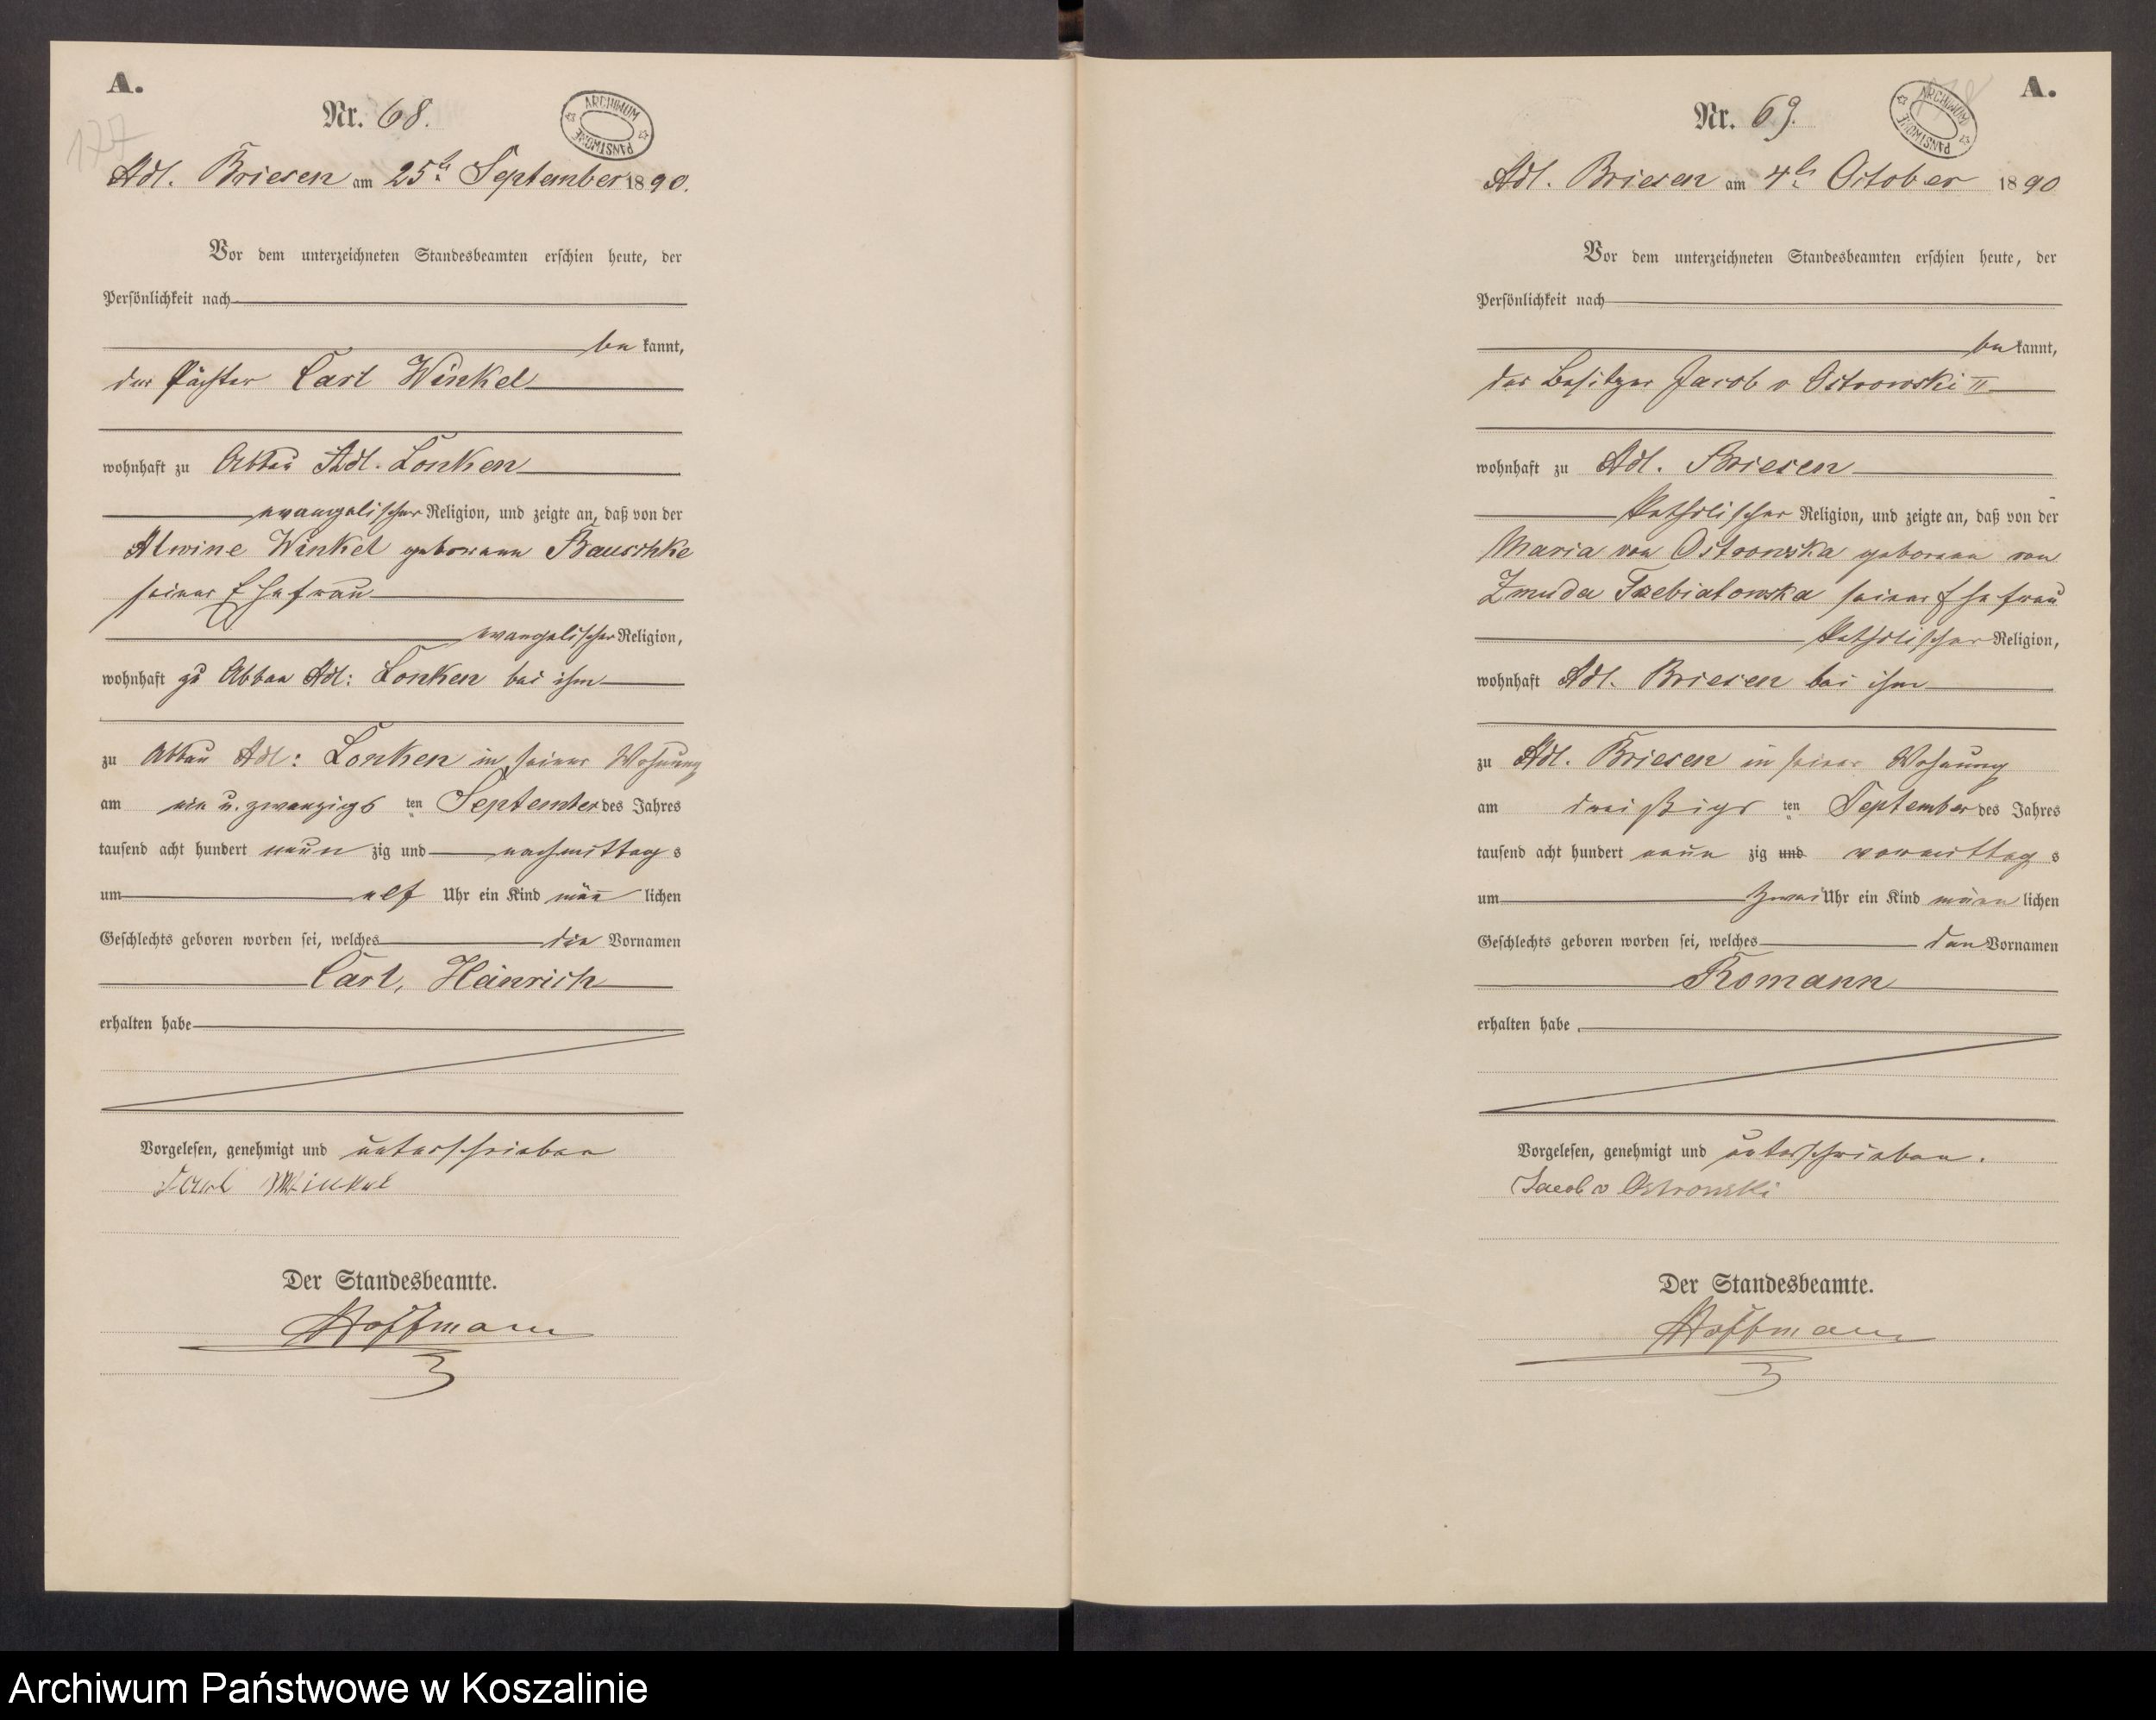 A.
Nr. 68.
ARCHIWUM PAŃSTWOWE
177
Adl. Briesen am 25ten September 1890.
Vor dem unterzeichneten Standesbeamten erschien heute, der
Persönlichkeit nach
be kannt,
der Pächter Carl Winkel
wohnhaft zu Abbau Adl. Lonken
evangelischer Religion, und zeigte an, daß von der
Alwine Winkel geborene Bauschke
seiner Ehefrau
evangelischer Religion,
wohnhaft zu Abbau Adl: Lonken bei ihm
zu Abbau Adl: Lonken in seiner Wohnung
am ein u. zwanzigs ten September des Jahres
tausend acht hundert neun zig und nachmittag s
um elf Uhr ein Kind män lichen
Geschlechts geboren worden sei, welches die Vornamen
Carl, Heinrich
erhalten habe
Vorgelesen, genehmigt und unterschrieben
Carl Winkel
Der Standesbeamte.
Hoffmann
A.
Nr. 69.
ARCHIWUM PAŃSTWOWE
Adl. Briesen am 4ten October 1890
Vor dem unterzeichneten Standesbeamten erschien heute, der
Persönlichkeit nach
be kannt,
der Besitzer Jacob v Ostrowski II
wohnhaft zu Adl. Briesen
katholischer Religion, und zeigte an, daß von der
Maria von Ostrowska geborene von
Zmuda Trzebiatowska seiner Ehefrau
katholischer Religion,
wohnhaft Adl. Briesen bei ihm
zu Adl. Briesen in seiner Wohnung
am dreißigs ten September des Jahres
tausend acht hundert neun zig und vormittag s
um zwei Uhr ein Kind männ lichen
Geschlechts geboren worden sei, welches den Vornamen
Romann
erhalten habe
Vorgelesen, genehmigt und unterschrieben.
Jacob v Ostrowski
Der Standesbeamte.
Hoffmann
Archiwum Państwowe w Koszalinie